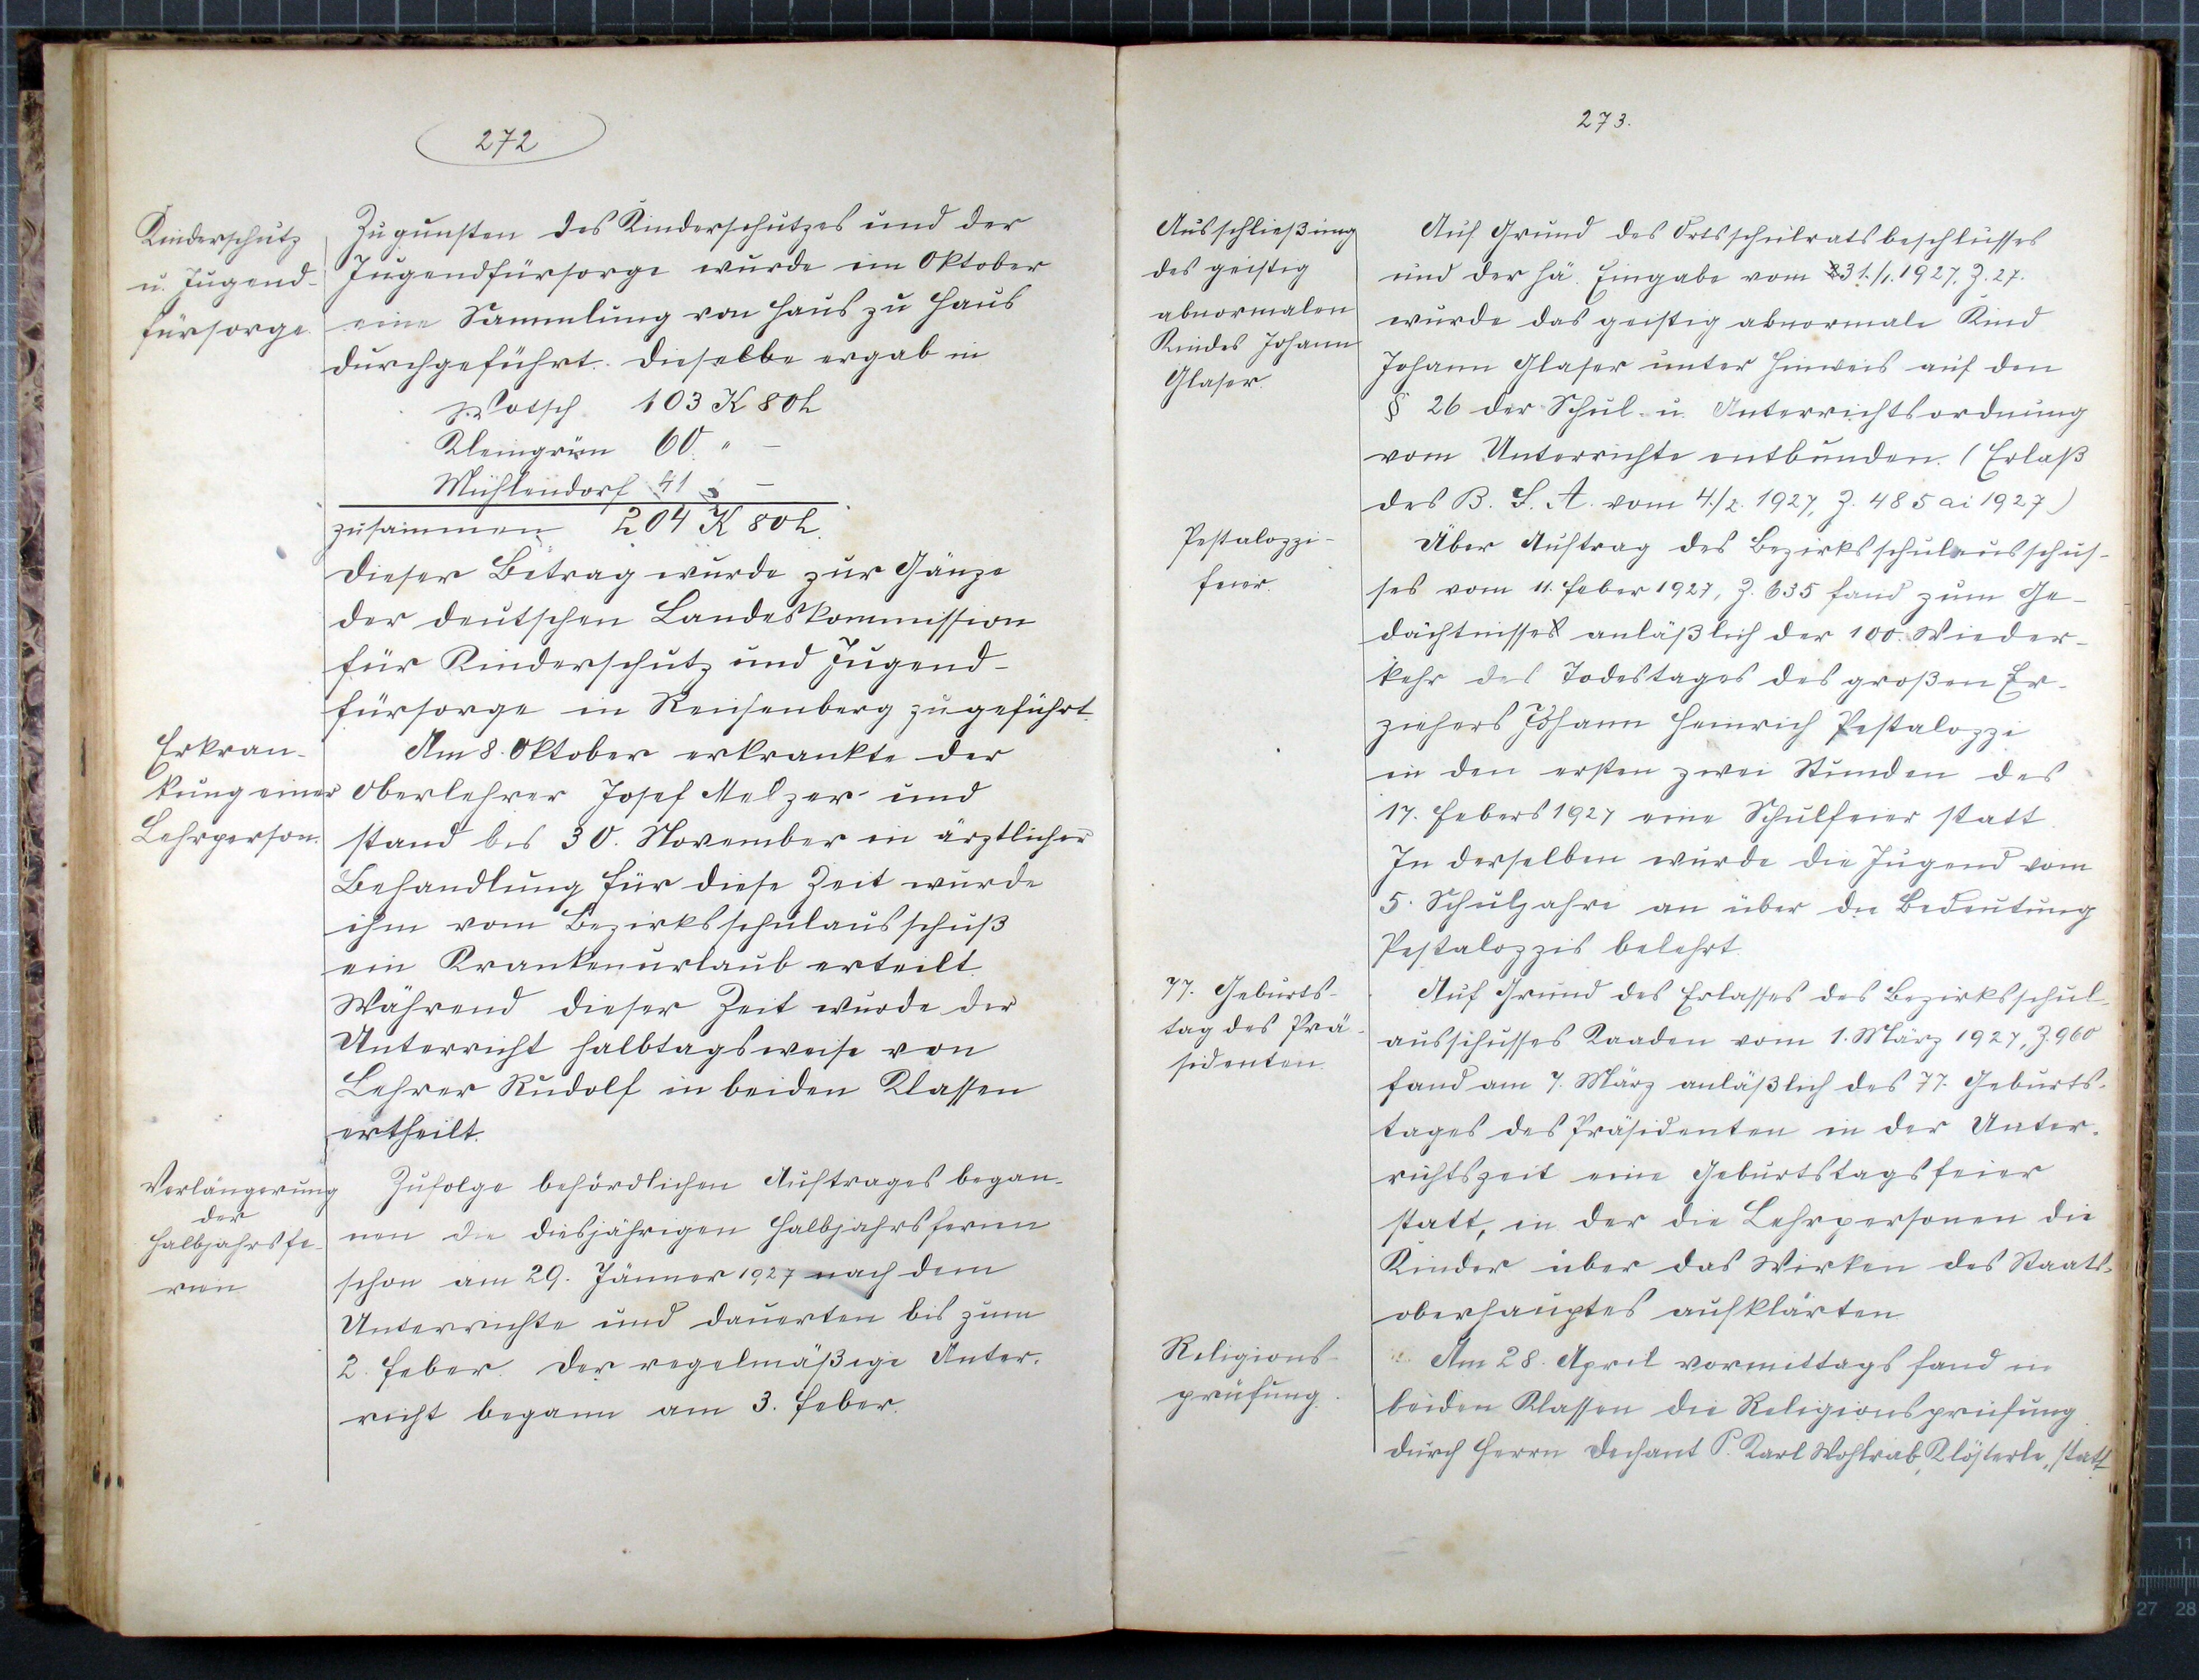 272
Kinderschutz
u. Jugend-
fürsorge.
Zugunsten des Kinderschutzes und der
Jugendfürsorge wurde im Oktober
eine Sammlung von Haus zu Haus
durchgeführt. Dieselbe ergab in
Wotsch 103 K 80 h
Kleingrün 60 " —
Mühlendorf 41 " —
zusammen 204 K 80 h.
Dieser Betrag wurde zur Gänze
der deutschen Landeskommission
für Kinderschutz und Jugend-
fürsorge in Reichenberg zugeführt.
Erkran-
kung einer
Lehrperson.
Am 8. Oktober erkrankte der
Oberlehrer Josef Melzer und
stand bis 30. November in ärztlicher
Behandlung für diese Zeit wurde
ihm vom Bezirksschulausschuß
ein Krankenurlaub erteilt.
Während dieser Zeit wurde der
Unterricht halbtagsweise von
Lehrer Rudolf in beiden Klassen
ertheilt.
Verlängerung
der
Halbjahrsfe-
rien
Zufolge behördlichen Auftrages began-
nen die diesjährigen Halbjahrsferien
schon am 29. Jänner 1927 nach dem
Unterrichte und dauerten bis zum
2. Feber. Der regelmäßige Unter-
richt begann am 3. Feber.
273.
Ausschließung
des geistig
abnormalen
Kindes Johann
Glaser.
Auf Grund des Ortsschulratsbeschlusses
und der hä. Eingabe vom 31./1. 1927, Z. 27.
wurde das geistig abnormale Kind
Johann Glaser unter Hinweis auf den
§ 26 der Schul- u. Unterrichtsordnung
vom Unterrichte entbunden. (Erlaß
des B. S. A. vom 4./2. 1927, Z. 485 ai 1927)
Pestalozzi-
feier.
Über Auftrag des Bezirksschulausschus-
ses vom 11. Feber 1927, Z. 635 fand zum Ge-
dächtnisses anläßlich der 100. Wieder-
kehr des Todestages des großen Er-
ziehers Johann Heinrich Pestalozzi
in den ersten zwei Stunden des
17. Febers 1927 eine Schulfeier statt.
In derselben wurde die Jugend vom
5. Schuljahre an über die Bedeutung
Pestalozzis belehrt.
77. Geburts-
tag des Prä-
sidenten.
Auf Grund des Erlasses des Bezirksschul-
ausschusses Kaaden vom 1. März 1927, Z. 960
fand am 7. März anläßlich des 77. Geburts-
tages des Präsidenten in der Unter-
richtszeit eine Geburtstagsfeier
statt, in der die Lehrpersonen die
Kinder über das Wirken des Staats-
oberhauptes aufklärten
Religions-
prüfung.
Am 28. April vormittags fand in
beiden Klassen die Religionsprüfung
durch Herrn Dechant P. Karl Wohlrab, Klösterle, statt